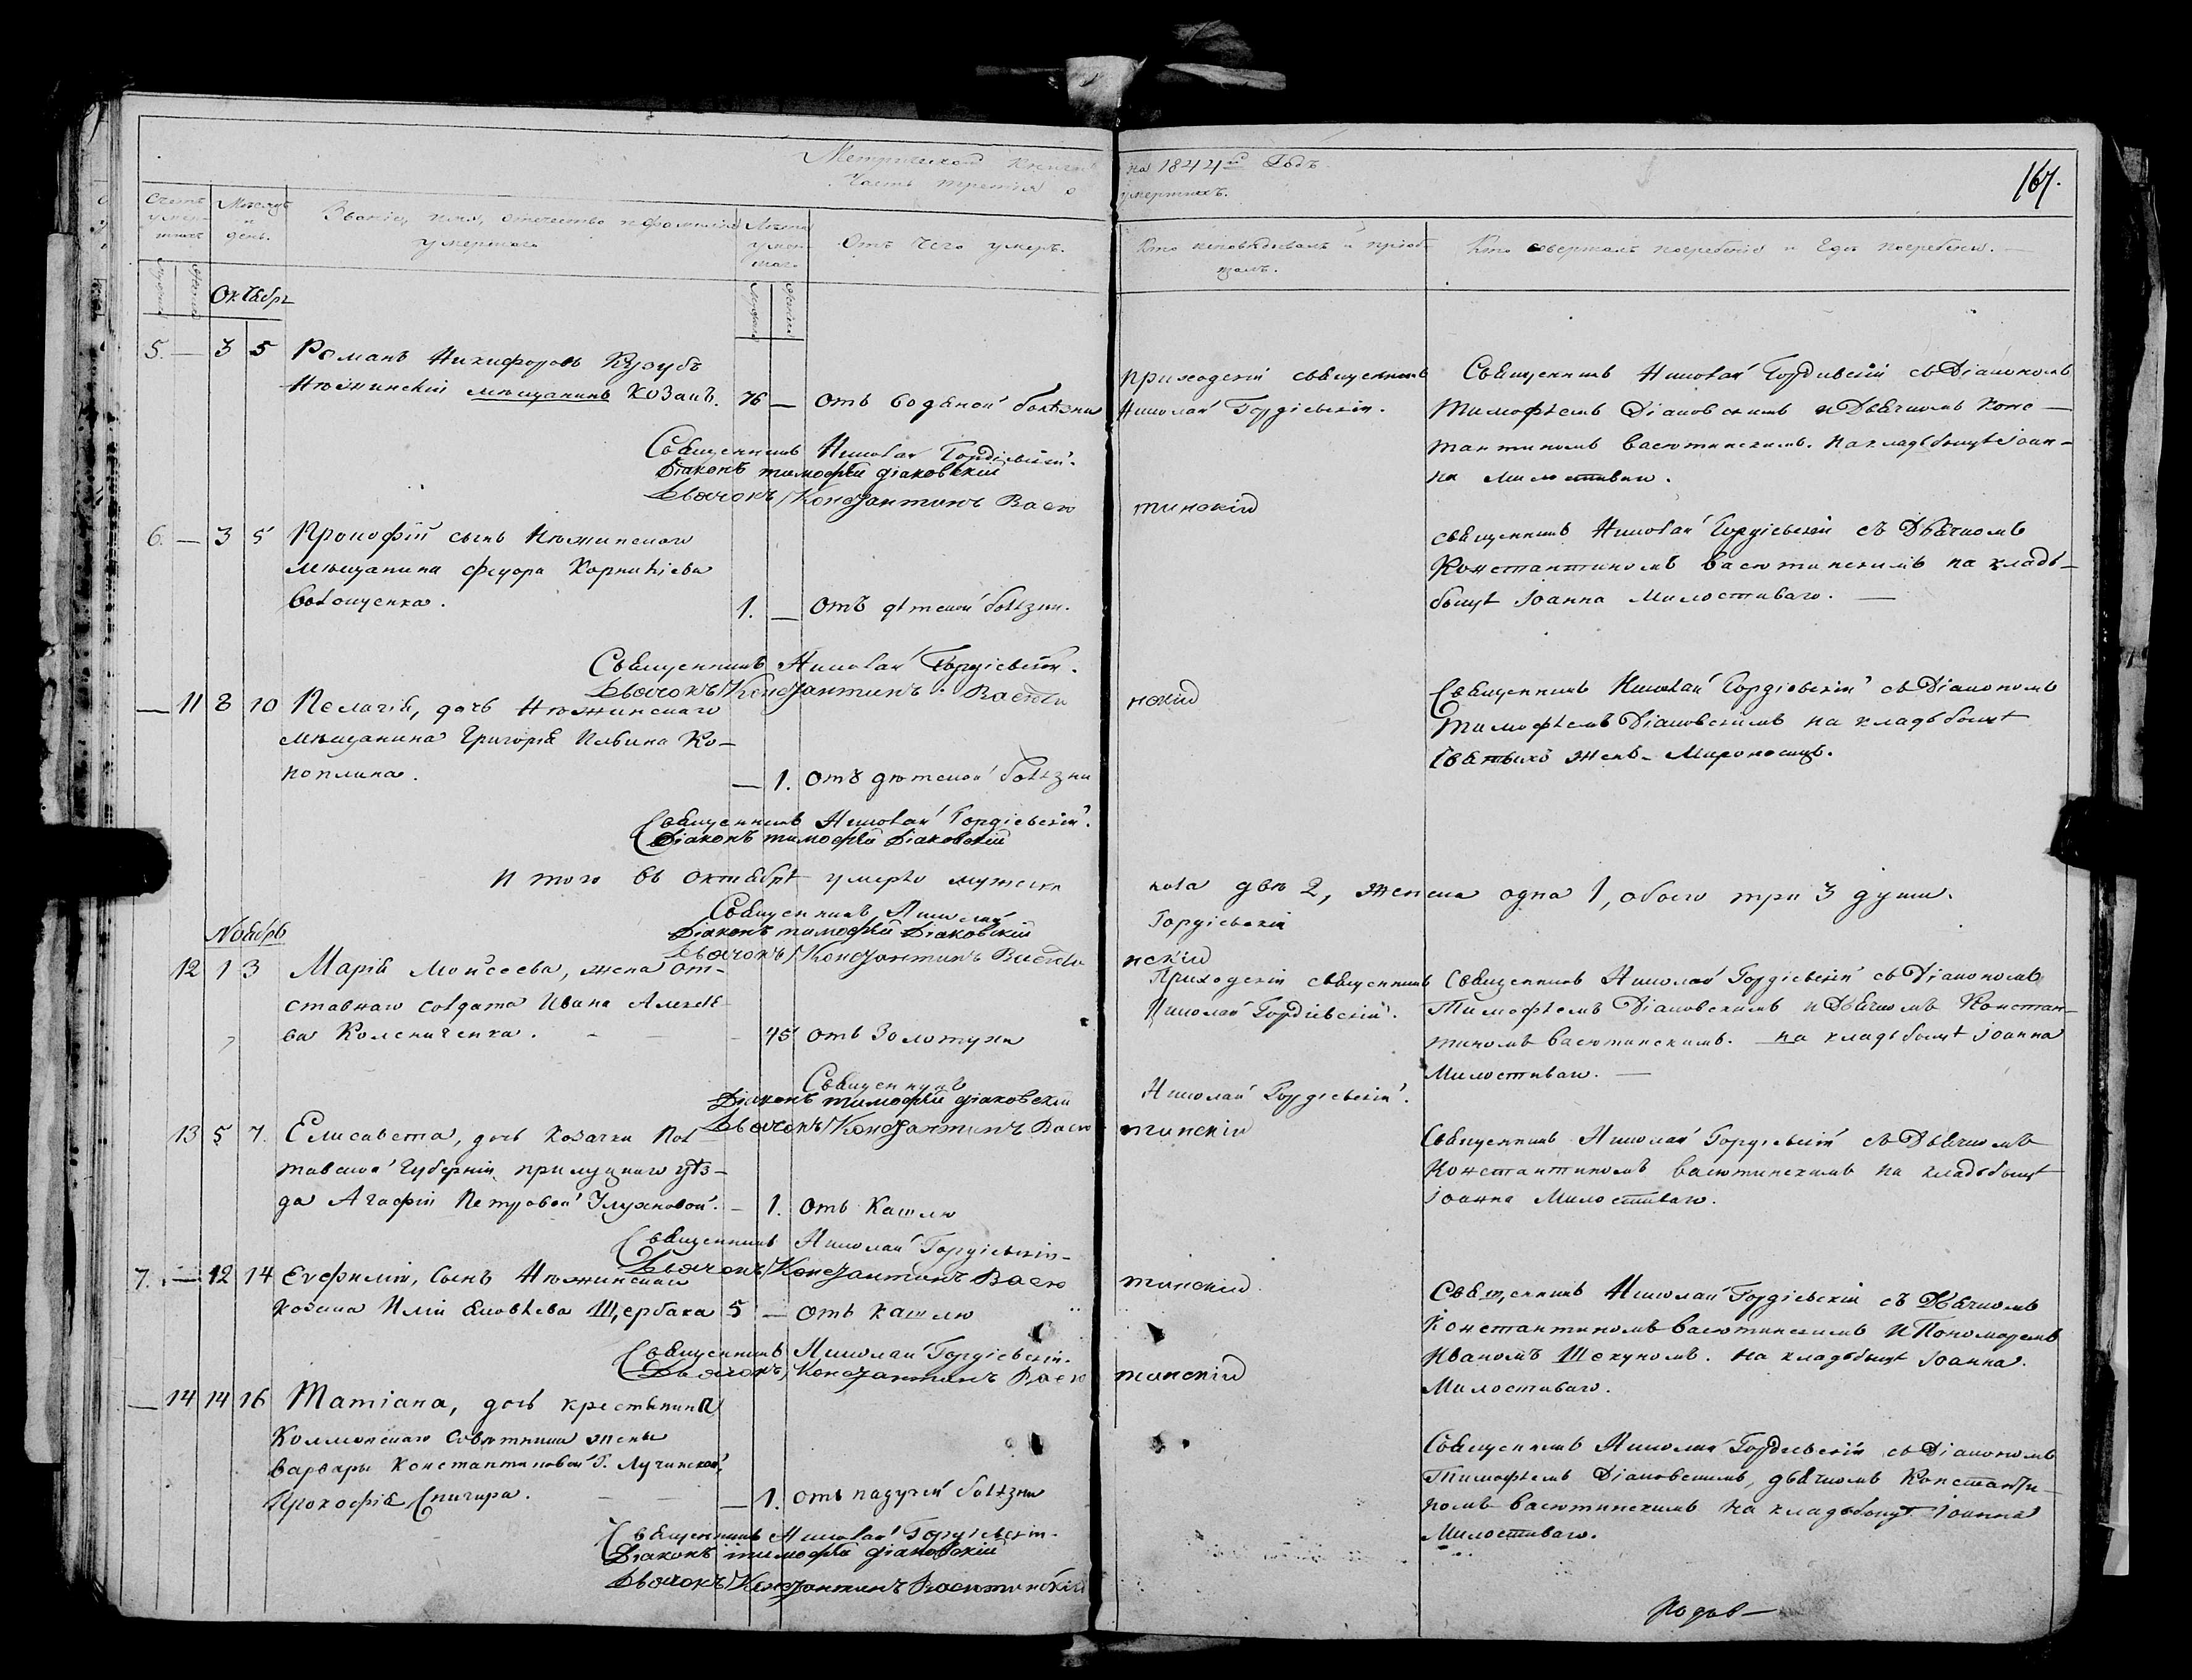 Метрической книги на 1844й Годъ. 167.
Часть третія о умершихъ.
Счетъ умершихъ
Мѣсяцъ и день.
Званіе, имя, отчество и фамилія умершаго
Лѣта умершаго
Отъ чего умеръ.
Кто исповѣдывалъ и пріобщалъ.
Кто совершалъ погребеніе и гдѣ погребены.
Октябрь
5. — 3 5 Романъ Никифоровъ
Нѣжинскій мѣщанинъ козакъ. 76 — отъ водяной болѣзни
приходскій священникъ
Николай Гордіевскій.
Священникъ Николай Гордіевскій съ Діакономъ
Тимофѣемъ Діаковскимъ и Дьячкомъ Конс—
тантиномъ Васютинскимъ. на кладьбищѣ Іоан-
на Милостиваго.
Священникъ Николай Гордіевскій.
Діаконъ тимофей діаковскій
Дьячокъ Константинъ Васютинскій
6. — 3 5 Прокофій сынъ Нѣжинскаго
мѣщанина Федора Корнилѣева
Волощенка. 1. — отъ дѣтской болѣзни.
священникъ Николай Гордіевскій съ Дьячкомъ
Константиномъ Васютинскимъ на кладь—
бищѣ Іоанна Милостиваго. —
Священникъ Николай Гордіевскій.
Дьячокъ Константинъ Васютинскій
— 11 8 10 Пелагія, дочь Нѣжинскаго
мѣщанина Григорія Ильина Ко—
ноплина. — 1. отъ дѣтской болѣзни
Священникъ Николай Гордіевскій съ Діакономъ
Тимофѣемъ Діаковскимъ на кладьбищѣ
Святыхъ Женъ-Мироносицъ.
Священникъ Николай Гордіевскій.
Діаконъ тимофей Діаковскій
Итого въ октябрѣ умерло мужеска пола двѣ 2, женска одна 1, обоего три 3 души.
Священникъ Николай Гордіевскій
Діаконъ тимофей Діаковскій
Дьячокъ Константинъ Васютинскій
Ноябрь
12 1 3 Марія Моисеева, жена от-
ставнаго солдата Ивана Алексѣе-
ва Колесниченка. — 45 отъ Золотухи
Приходскій священникъ
Николай Гордіевскій.
Священникъ Николай Гордіевскій съ Діакономъ
Тимофѣемъ Діаковскимъ и Дьячкомъ Констан—
тиномъ Васютинскимъ. на кладьбищѣ Іоанна
Милостиваго. —
Священникъ Николай Гордіевскій.
Діаконъ тимофей діаковскій
Дьячокъ Константинъ Васютинскій
13 5 7. Елисавета, дочь козачки Пол
тавской Губерніи прилуцкаго уѣз—
да Агафіи Петровой — 1. отъ кашлю
Священникъ Николай Гордіевскій съ Дьячкомъ
Константиномъ Васютинскимъ на кладьбищѣ
Іоанна Милостиваго.
Священникъ Николай Гордіевскій
Дьячокъ Константинъ Васютинскій
7. — 12 14 Евфимій, сынъ Нѣжинскаго
козака Иліи Яковлева Щербака 5 — отъ кашлю
Священникъ Николай Гордіевскій съ Дьячкомъ
Константиномъ Васютинскимъ и Пономаремъ
Иваномъ Шекуномъ. на кладьбищѣ Іоанна
Милостиваго.
Священникъ Николай Гордіевскій.
Дьячокъ Константинъ Васютинскій
— 14 14 16 Татіана, дочь крестьянина
Коллежскаго Совѣтника жены
Варвары Константиновой Г. Лучинской,
Прокофія Снигира. — 1. отъ падучей болѣзни
Священникъ Николай Гордіевскій съ Діакономъ
Тимофѣемъ Діаковскимъ, дьячкомъ Константи—
номъ Васютинскимъ на кладьбищѣ Іоанна
Милостиваго.
Священникъ Николай Гордіевскій.
Діаконъ тимофей діаковскій
Дьячокъ Константинъ Васютинскій